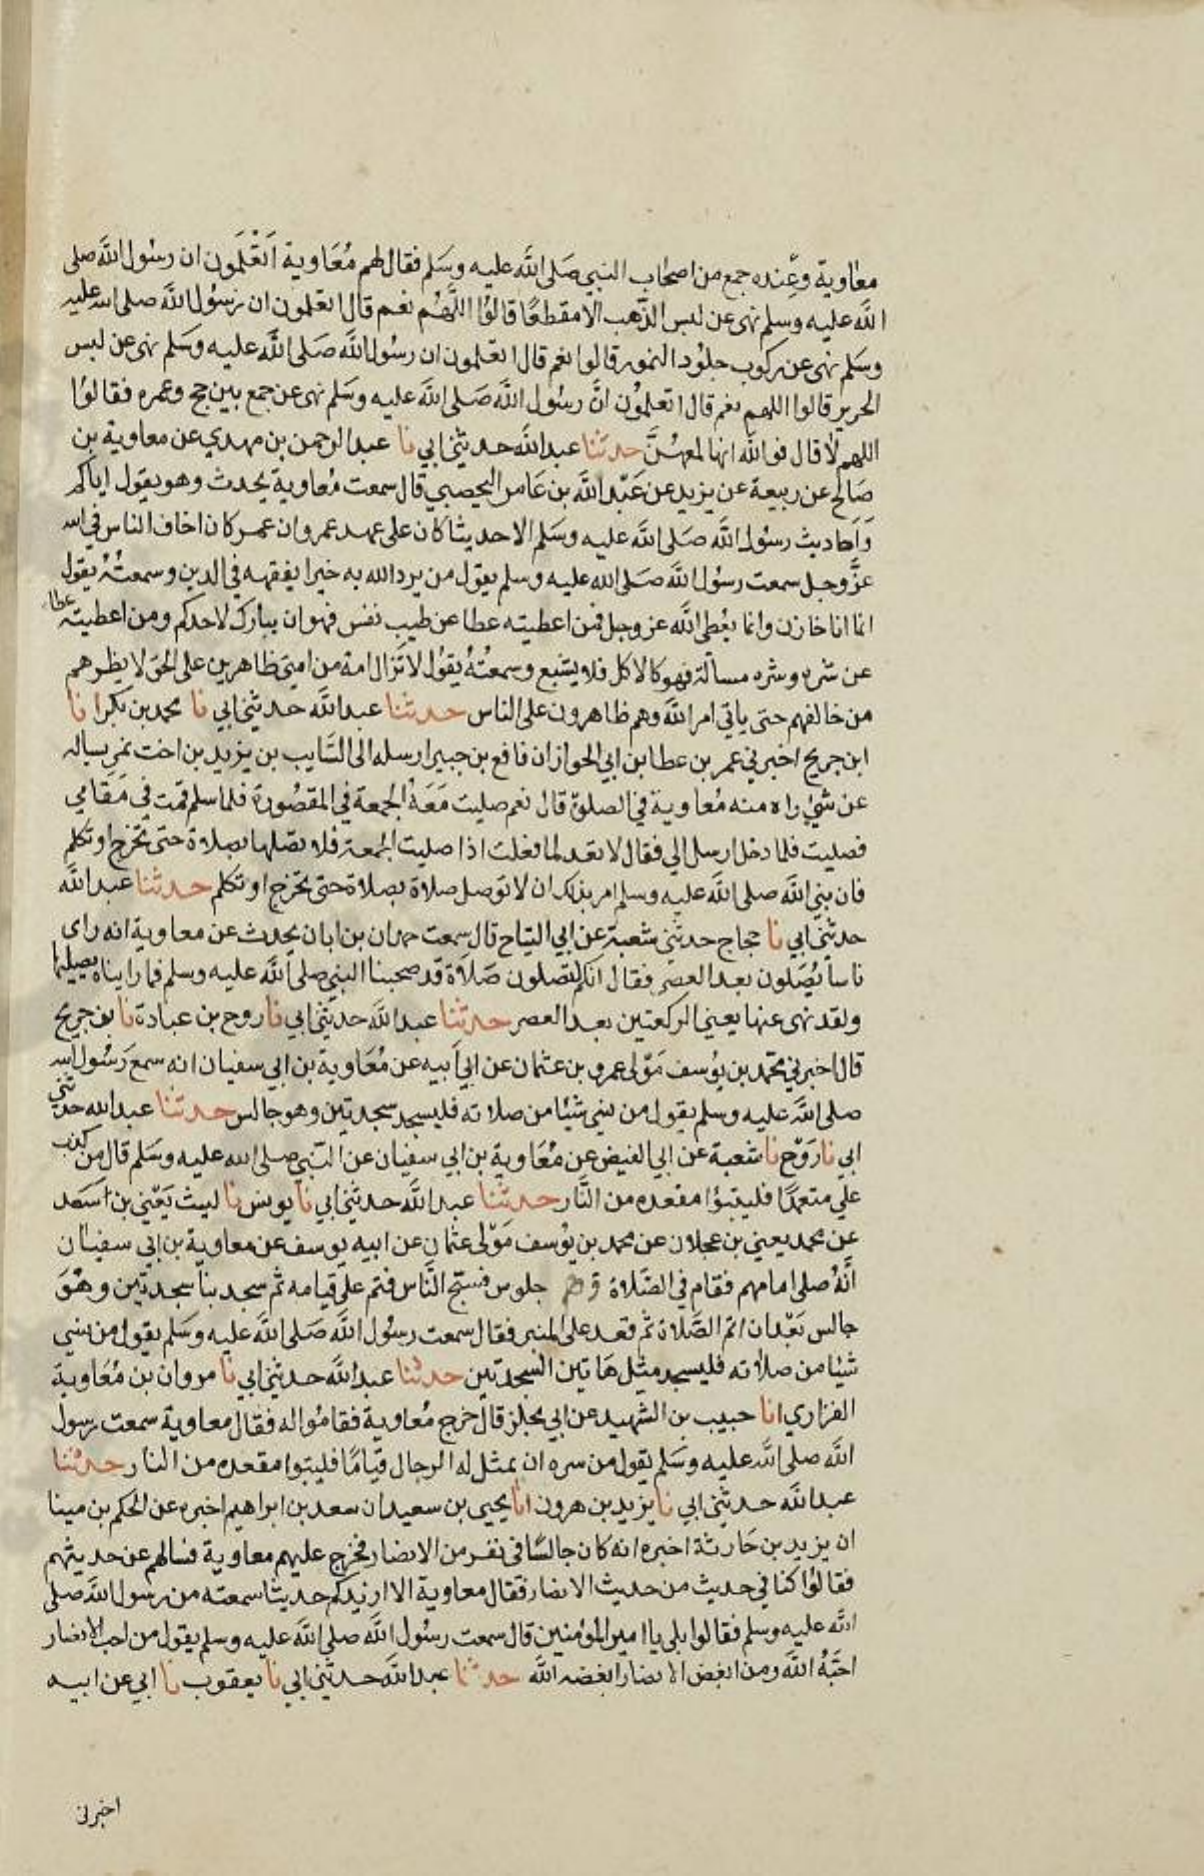 معاوية وعنده جمع من اصحاب النبي صَلى الله عليه وسَلم فقال لهم مُعَاوية اَتَعْلَمُون ان رسُول الله صلى
الله عليه وسلم نهى عن لبس الذّهب الا مقطعًا قالوُا اللَّهُم نعم قال اتعلمون ان رسُول الله صلى الله عليه
وسَلم نهى عن ركوب جلوُد النمور قالوا نعم قال اتعلمون ان رسُول الله صَلى الله عليه وسَلم نهى عن لبس
الحرير قالوا اللهم نعم قال اتعلمُون انَّ رسُول الله صَلى الله عليه وسَلم نهى عن جمع بين حج وعمره فقالوُا
اللهم لا قال فوالله انها لمعهُنَّ حدثنا عبدالله حدثني ابي نا عبدالرحمن بن مهدي عن معاوية بن
صَالح عن ربيعة عن يزيد عن عَبْدالله بن عَامر اليحصبي قال سمعت مُعاوية يحدث وهو يقول اياكم
وَاَحاديث رسُول الله صَلى الله عليه وسَلم الا حديثا كان على عهد عمر وان عمر كان اخاف الناس في الله
عزَّ وجل سمعت رسُول الله صَلى الله عليه وسلم يقول من يرد الله به خيرا يفقهه في الدين وسمعتُهُ يقول
انما انا خازن وانما يعُطي الله عز وجل فمن اعطيته عطا عن طيب نفس فهو ان يبارك لاحدكم ومن اعطيته عطاء
عن شره وشره مسالة فهو كالاكل فلا يشبع وسمعْتُهُ يقوُل لا تَزال امة من امتي ظاهرين على الحق لا يظرهم
من خالفهم حتى ياتي امر الله وهم ظاهرون على الناس حدثنا عبدالله حدثني ابي نا محمد بن بكر انا
ابن جريج اخبرني عمر بن عطا بن ابي الخواز ان نافع بن جبير ارسله الى السَّايب بن يزيد بن اخت نمر يساله
عن شيْ راه منه مُعاوية في الصلوة قال نعم صليت مَعَهُ الجمعة في المقصُورة فلما سلم قمت في مَقامي
فصليت فلما دخل ارسل الي فقال لا تعد لما فعلت اذا صليت الجمعة فلا تصلها بصلاة حتى تخرج او تكلم
فان نبي الله صلى الله عليه وسلم امر بذلك ان لا توصل صلاة بصلاة حتى تخرج او تكلم حدثنا عبدالله
حدثني ابي نا حجاج حدثني شعبة عن ابي التياح قال سمعت حمران بن ابان يحدث عن معاوية انه راى
ناسا يُصَلون بعد العصر فقال انكم لتصلون صَلاَة قد صحبنا النبي صلى الله عليه وسلم فما رايناه يصليها
ولقد نهى عنها يعني الركعتين بعد العصر حدثنا عبدالله حدثني ابي نا روح بن عبادة نا بن جريج
قال اخبرني محمد بن يوُسف مَوْلى عمرو بن عثمان عن ابي اَبيه عن مُعَاوية بن ابي سفيان انه سمع رَسُول الله
صلى الله عليه وسلم يقول من نسي شيئا من صلاته فليسجد سجدتين وهو جالس حدثنا عبدالله حدثني
ابي نا رَوْح نا شعبة عن ابي الفيض عن مُعَاوية بن ابي سفيان عن النبي صلى الله عليه وسَلم قال من كذب
علي متعمدًا فليتبؤا مقعده من النَّار حدثنا عبدالله حدثني ابي نا يونس نا ليث يَعْني بن اَسَعد
عن محمد يعني بن عجلان عن محمد بن يوُسف مَوْلى عثمان عن ابيه يوسف عن معاوية بن ابي سفيان
انَّهُ صلى امامهم فقام في الصَّلاة وعليه جلوس فسبّح النَّاس فتم على قيامه ثم سجد بنا سجدتين وهُوَ
جالس بَعْد ان اتم الصَّلاة ثم قعد على المنبر فقال سمعت رسوُل الله صَلى الله عليه وسَلم يقول من نسي
شيئا من صلاته فليسجد مثل هَاتين السجدتين حدثنا عبدالله حدثني ابي نا مروان بن مُعَاوية
الفزاري انا حبيب بن الشهيد عن ابي مجلز قال خرج مُعاوية فقاموُا له فقال معاوية سمعت رسول
الله صلى الله عليه وسَلم يقول من سره ان يمثل له الرجال قيامًا فليتبوا مقعده من النار حدثنا
عبدالله حدثني ابي نا يزيد بن هرون انا يحيى بن سعيد ان سعد بن ابراهيم اخبره عن الحكم بن مينا
ان يزيد بن حَارثة اخبره انه كان جالسًا في نفر من الانصار فخرج عليهم معاوية فسالهم عن حديثهم
فقالوُا كنا في حديث من حديث الانصار فقال معاوية الا ازيدكم حديثا سمعته من رسول الله صلى
الله عليه وسلم فقالوا بلى يا امير المؤمنين قال سمعت رسُول الله صلى الله عليه وسلم يقول من احب الانصار
احبَّهُ الله ومن ابغض الانصار ابغضه الله حدثنا عبدالله حدثني ابي نا يعقوب نا ابي عن ابيه
اخبرني